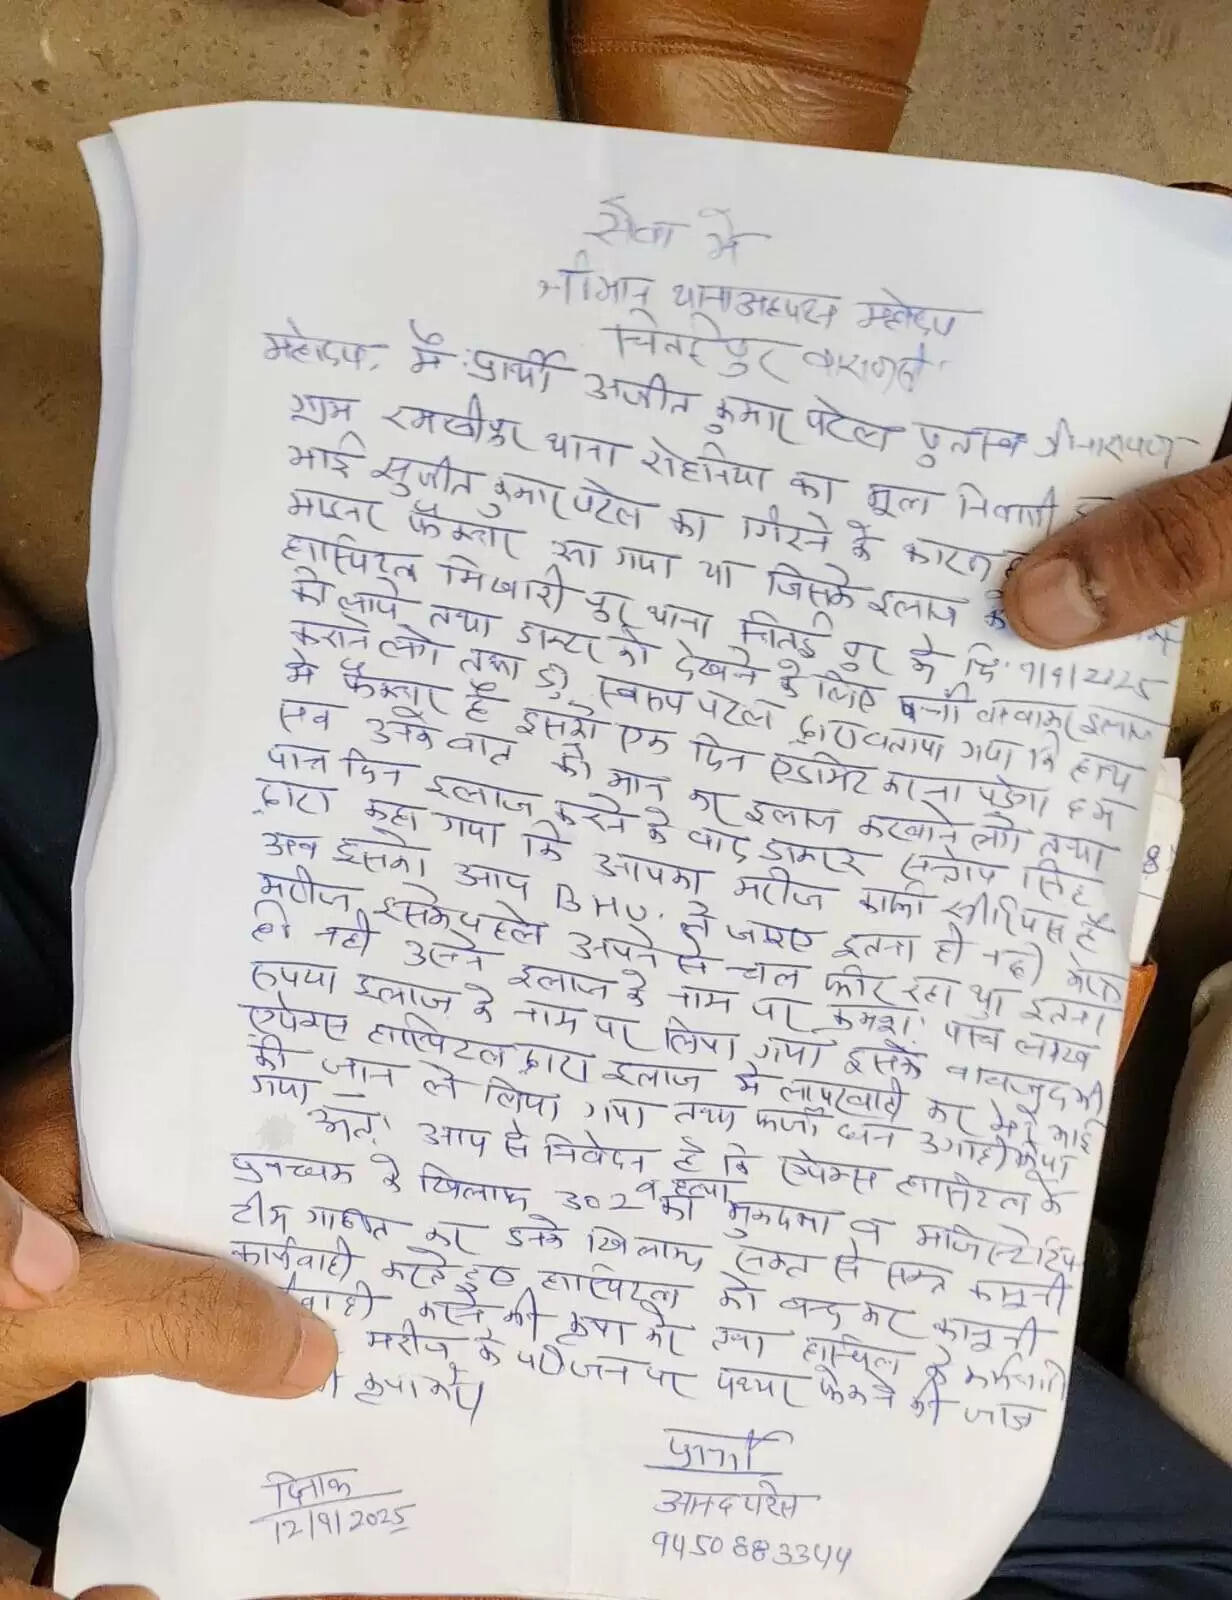 सेवा मे
श्रीमान् थानाअध्यक्ष महोदय
चितईपुर वाराणसी
महोदय, मै प्रार्थी अजीत कुमार पटेल पुत्र स्व श्रीनारायण
ग्राम रमखीपुर थाना रोहनिया का मूल निवासी
भाई सुजीत कुमार पटेल का गिरने के कारण
माइनर फैक्चर आ गया था जिसके इलाज के
हास्पिटल भिखारी पुर थाना चितई पुर के दि. 9/9/2025
को लाये तथा डाक्टर को देखने के लिए पर्ची बनवाकर इलाज
कराने लगे तथा डॉ. स्वरुप पटेल द्वारा बताया गया कि हाथ
मे फैक्चर है इसको एक दिन एडमिट करना पड़ेगा हम
सब उनके बात को मान कर इलाज करवाने लगे तथा
पाच दिन इलाज करने के बाद डाक्टर सन्तोष सिंह
द्वारा कहा गया कि आपका मरीज काफी सीरियस है
अब इसको आप BHU. ले जाइए इतना ही नही मेरा
मरीज इसके पहले अपने से चल फीर रहा था इतना
ही नही उसने इलाज के नाम पर क्रमश: पांच लाख
रुपया इलाज के नाम पर लिया गया इसके बावजुद भी
एपेक्स हास्पिटल द्वारा इलाज मे लापरवाही कर मेरे भाई
की जान ले लिया गया तथा फर्जी धन उगाही किया
गया –
अत: आप से निवेदन है कि एपेक्स हास्पिटल के
प्रबन्धक के खिलाफ 302 व हत्या का मुकदमा व मजिस्ट्रेटियल
टीम गठित कर उनके खिलाफ सख्त से सख्त कानूनी
कार्यवाही करते हुए हास्पिटल को बन्द कर कानूनी
करने की कृपा करे तथा हास्पिटल के कर्मचारी
मरीज के परिजन पर पथ्थर फेकने की जाच
कृपा करे।
प्रार्थी
आनन्द पटेल
9450883344
दिनांक
12/9/2025